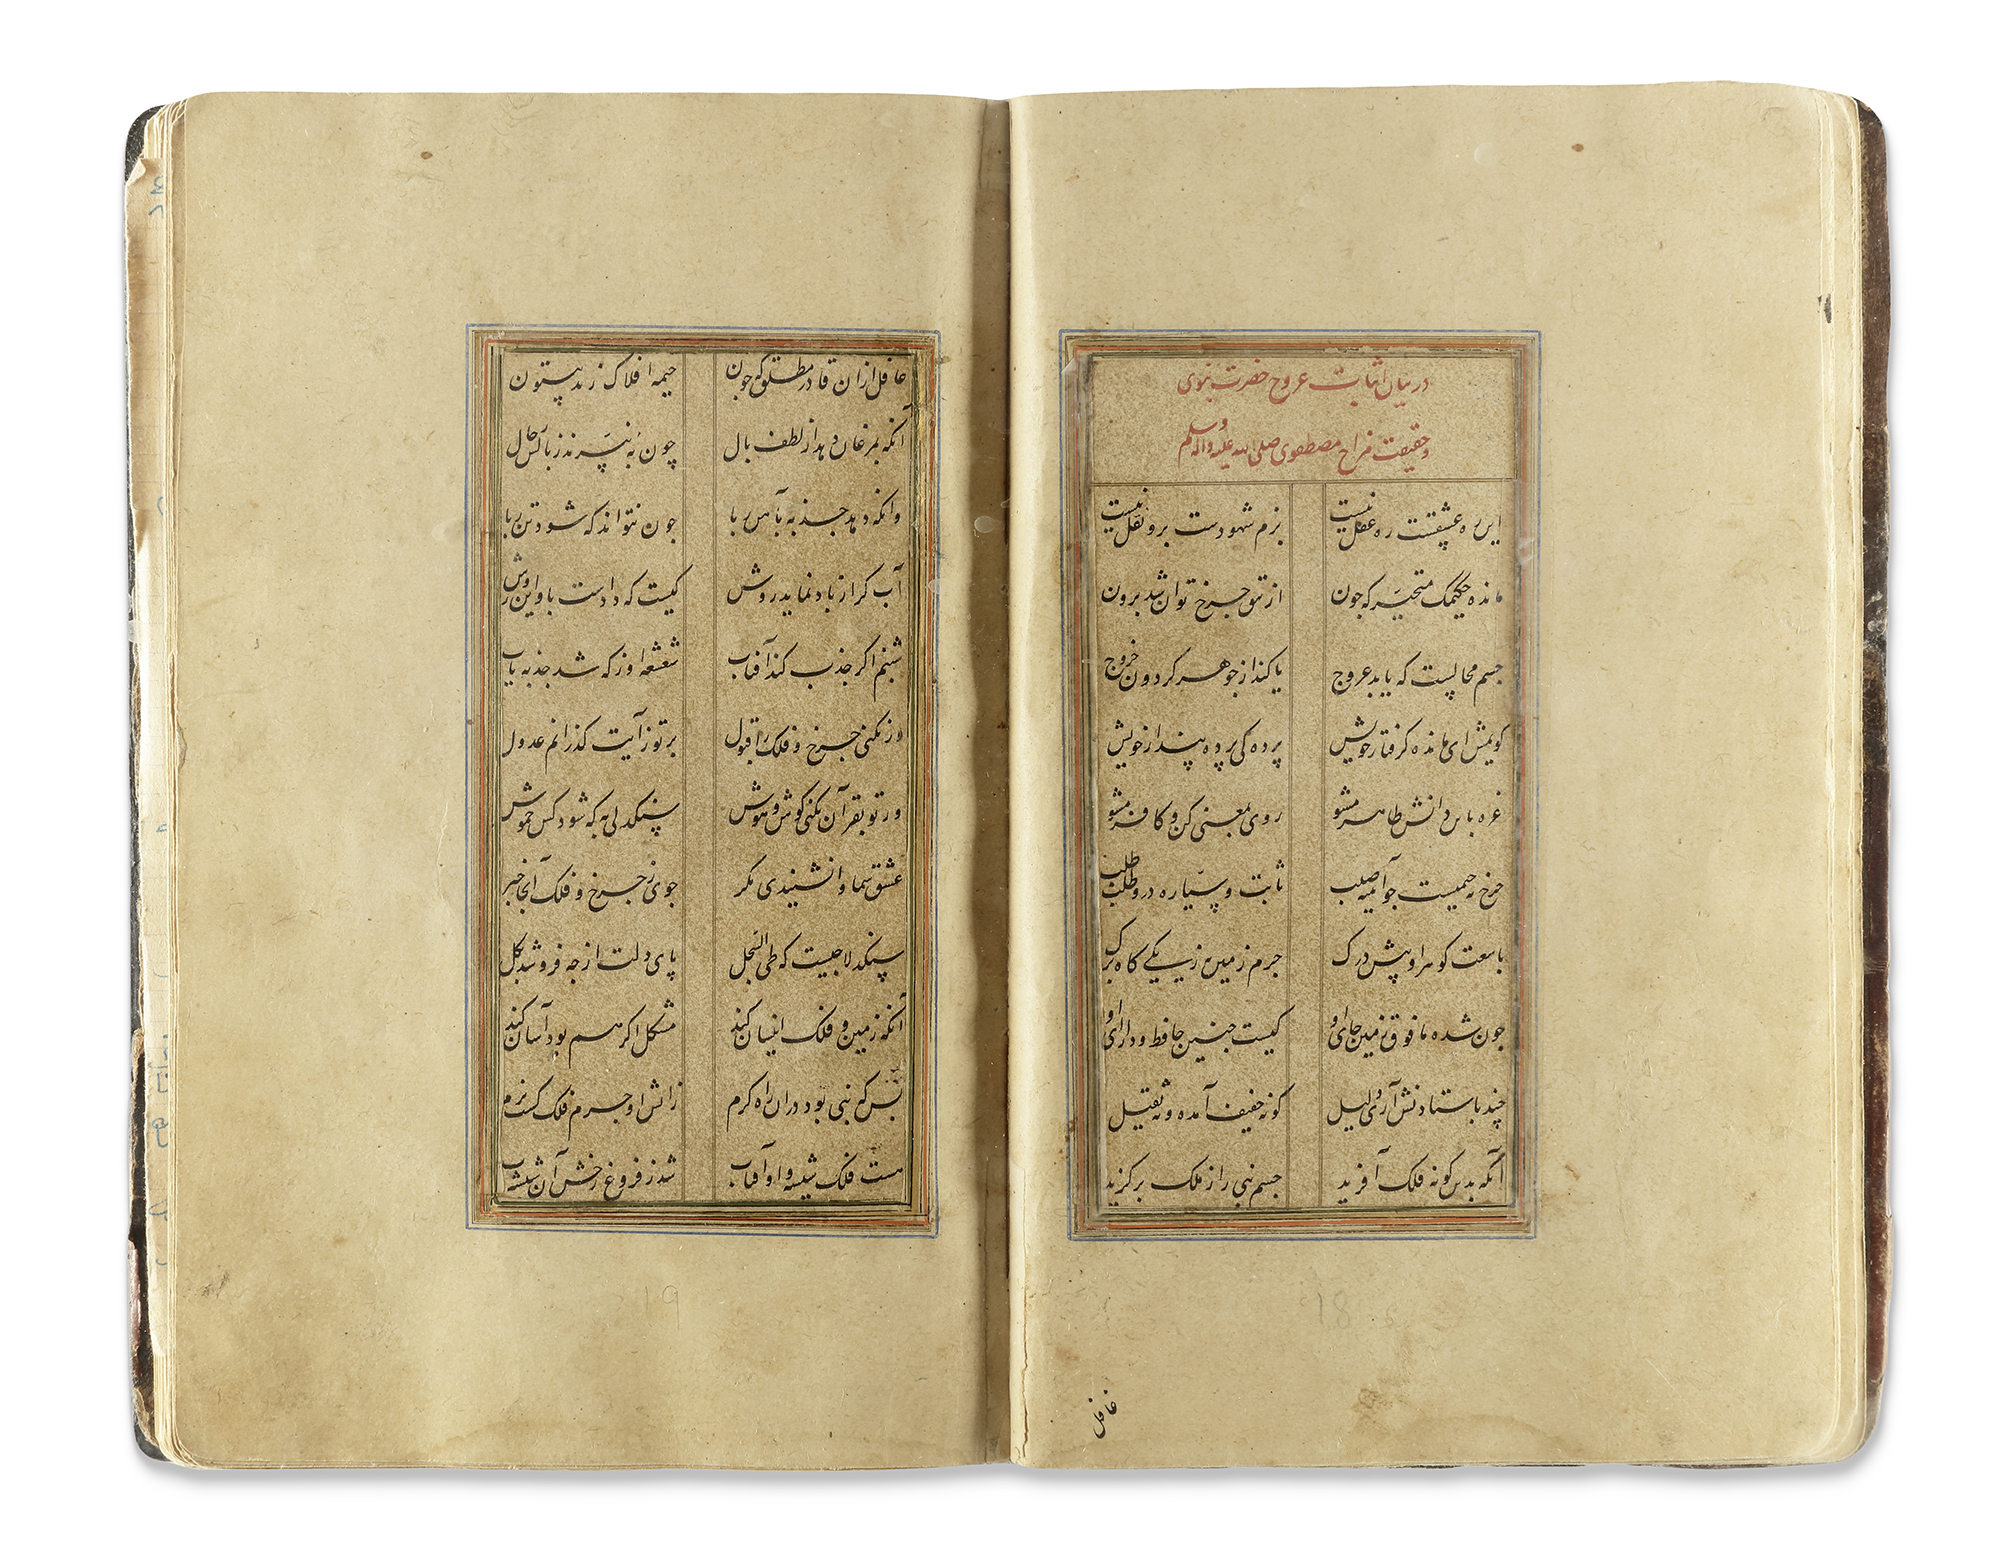 در بیان اثبات عروج حضرت نبوی
و حقیقت معراج مصطفوی صلی الله علیه و اله و سلم
این ره عشقست ره عقل نیست بزم شهودست برو نقل نیست
مانده حکیمک متحیر که جون از تتق جرخ توان شد برون
جسم محالیست که یابد عروج یا کند از جوهر کردون خروج
کویمش ای مانده کرفتار خویش پرده کی پرده پندار خویش
غره باین دانش ظاهر مشو روی بمعنی کن و کافر مشو
جرخ نه جمیست جو آیینه صلب ثابت و سیاره درو
با سعت کوهر او پیش درک جرم زمین نیز یکی کاه برک
جون شده مافوق زمین جای او کیست جنین حافظ و دارای او
چند باستادنش آری دلیل کو نه خفیف آمده و نه ثقیل
آنکه بدین کونه فلک آفرید جسم نبی را ز ملک برکزید
غافل
غافل ازان قادر مطلق که جون خیمه افلاک زند بیستون
آنکه بمرغان دهد از لطف بال چون نپرند
وانکه دهد جذبه بآهن ربا جون نتواند که شود تن ربا
آب کر از باد نماید روش کیست که دادست باو این روش
شبنم اکر جذب کند آفتاب شعشعه او ز که شد جذبه یاب
ور نکنی جرخ و فلک را قبول بر تو ز آیت کذرانم عدول
ور تو بقرآن نکنی کوش و هوش سنکدلی به که شود کس خموش
عشق سما وانشنیدی مکر جوی ز جرخ و فلک آنجا خبر
سنکدلا جیست که طی السجل پای دلت از جه فرو شد بکل
آنکه زمین و فلک اینسان کند مشکل اکر هم بود آسان کند
بس که نبی بود دران راه کرم زاتش او جرم فلک کشت نرم
هست فلک شیشه و او آفتاب شد ز فروغ رخش آن شیشه آب
18
19